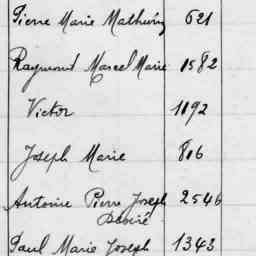 Pierre Marie Mathurin 621
Raymond Marcel Marie 1582
Victor 1192
Joseph Marie 816
Antoine Pierre Joseph 2546
Désiré
Paul Marie Joseph 1343